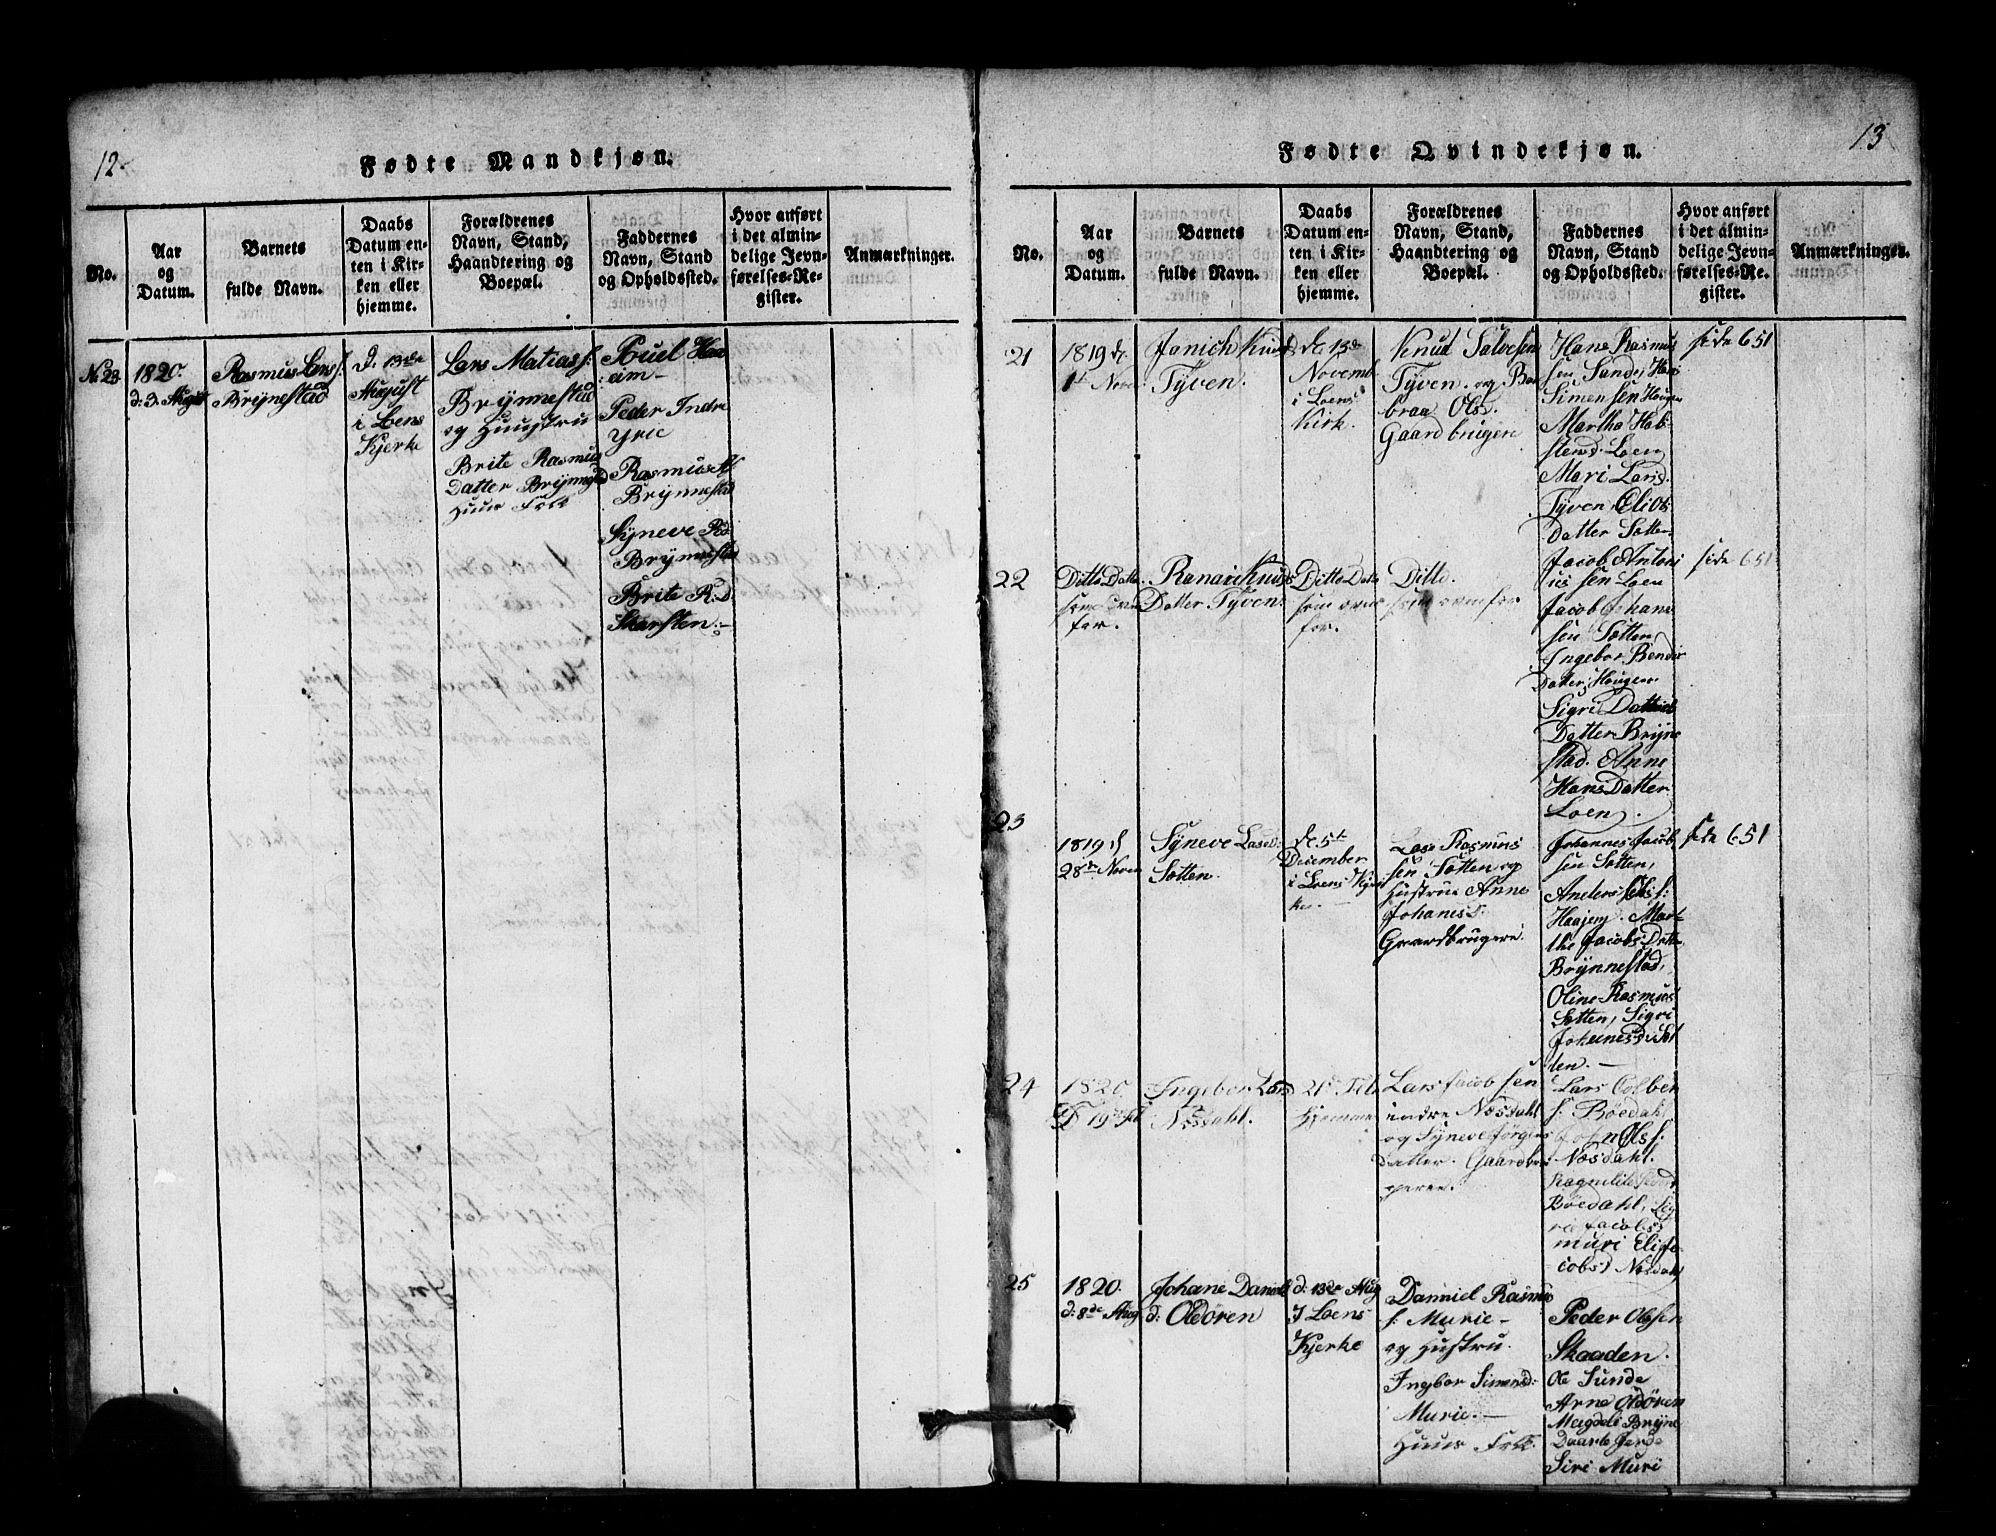 12.
Fødte Mandkjøn.
No.
Aar
og
Datum.
Barnets
fulde Navn.
Daabs
Datum en-
ten i Kir-
ken eller
hjemme.
Forældrenes
Navn, Stand,
Haandtering og
Boepæl.
Faddernes
Navn, Stand
og Opholdssted.
Hvor anført
i det almin-
delige Jevn-
førelses-Re-
gister.
Anmærkninger.
No 23
1820.
d: 3. Augst
Rasmus Lars s:
Brynestad
d. 13de
August
i Loens
Kjerke
Lars Matias s:
Brynnestad
og Huustru
Brite Rasmus
Datter Brynnestad
Huus Folk
Pouel
Peder Indre
Yrie
Rasmus
Brynnestad
Syneve R:d:
Brynnestad
Brite R:d:
Skarsten:-
13
Fødte Qvindekjøn.
No.
Aar
og
Datum.
Barnets
fulde Navn.
Daabs
Datum en-
ten i Kir-
ken eller
hjemme.
Forældrenes
Navn, Stand,
Haandtering og
Boepæl.
Faddernes
Navn, Stand
og Opholdssted.
Hvor anført
i det almin-
delige Jevn-
førelses-Re-
gister.
Anmærkninger.
21
1819 de
1t Nove
Janich Knuds
Tyven.
de 15de
Novemb
i Loens
Kirk.
Knud Salvesen
Tyven. og Bar
braa Olsd.
Gaardbrugere
Hans Rasmus
sen Sunde, Hans
Simensen Hougen
Martha
Loen
Mari Larsd.
Tyven, Eli Ols
Datter Sætten
side 651
22
Ditto Datto
som oven
for.
Ranari Knuds
Datter Tyven
Ditto Dato
som oven
for.
Ditto.
som ovenfor
Jacob Antoni
us sen Loen
Jacob Johane
sen Sætten
Ingebor Bendix
Datter, Hougen
Sigri
Datter Bryne
stad. Anne
Hans Datter
Loen.
side 651
23
1819 d
28de Nove
Syneve Lassed:
Sætten.
de 5te
December
i Loens Kjer
ke.
Lase Rasmus
sen Sætten og
Hustrue Anne
Johanesd.
Gaardbrugere.
Johannes Jacob
sen Sætten,
Anders
Haajem. Mar
the Jacobs Datter
Brynnestad,
Oline Rasmus
Sætten, Sigri
Johannesd: Sæt
ten. -
side 651
24
1820
D 19de Feb
Ingebor Larsd
Næsdahl.
21de Feb
Hjemme
Lars Jacob sen
indre Næsdahl
og Syneve Jørgens
Datter. Gaardbru
gere.
Lars Colben
s: Bødahl,
John Ols s:
Næsdahl.
Bødahl, Sig
ri Jacobsd
muri Eli Ja
cobsd Næsdahl
25
1820.
d: 8de Aug
Johane Daniels
d: Oldøren
d: 13de Aug
I Loens
Kjerke
Danniel Rasmus
s: Murie -
og Hustru.
Ingbor Simensd:
Murie. -
Huus Folk.
Peder Olssen
Skaaden.
Ole Sunde
Arne Oldøren
Magdeli Bryne
Daarte Jerde
Siri Muri